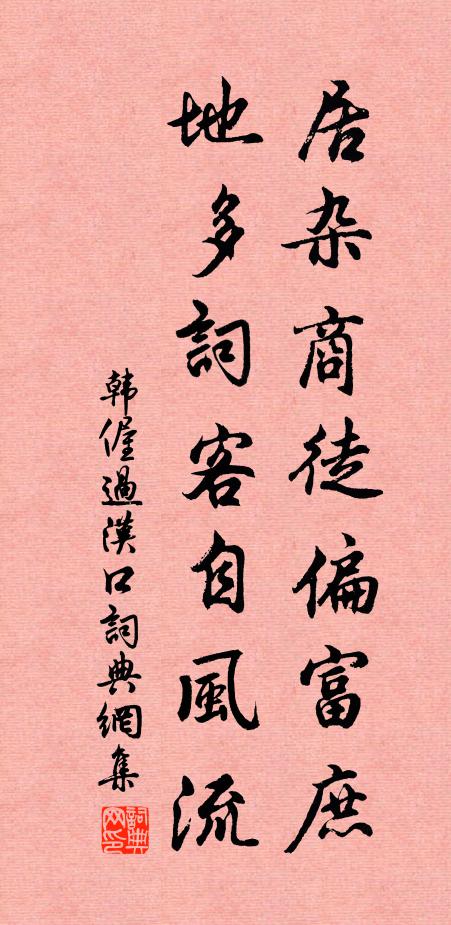 居杂商徒偏富庶
地多詞客自風流
韩偓過漢口詞典網集
詞典网印